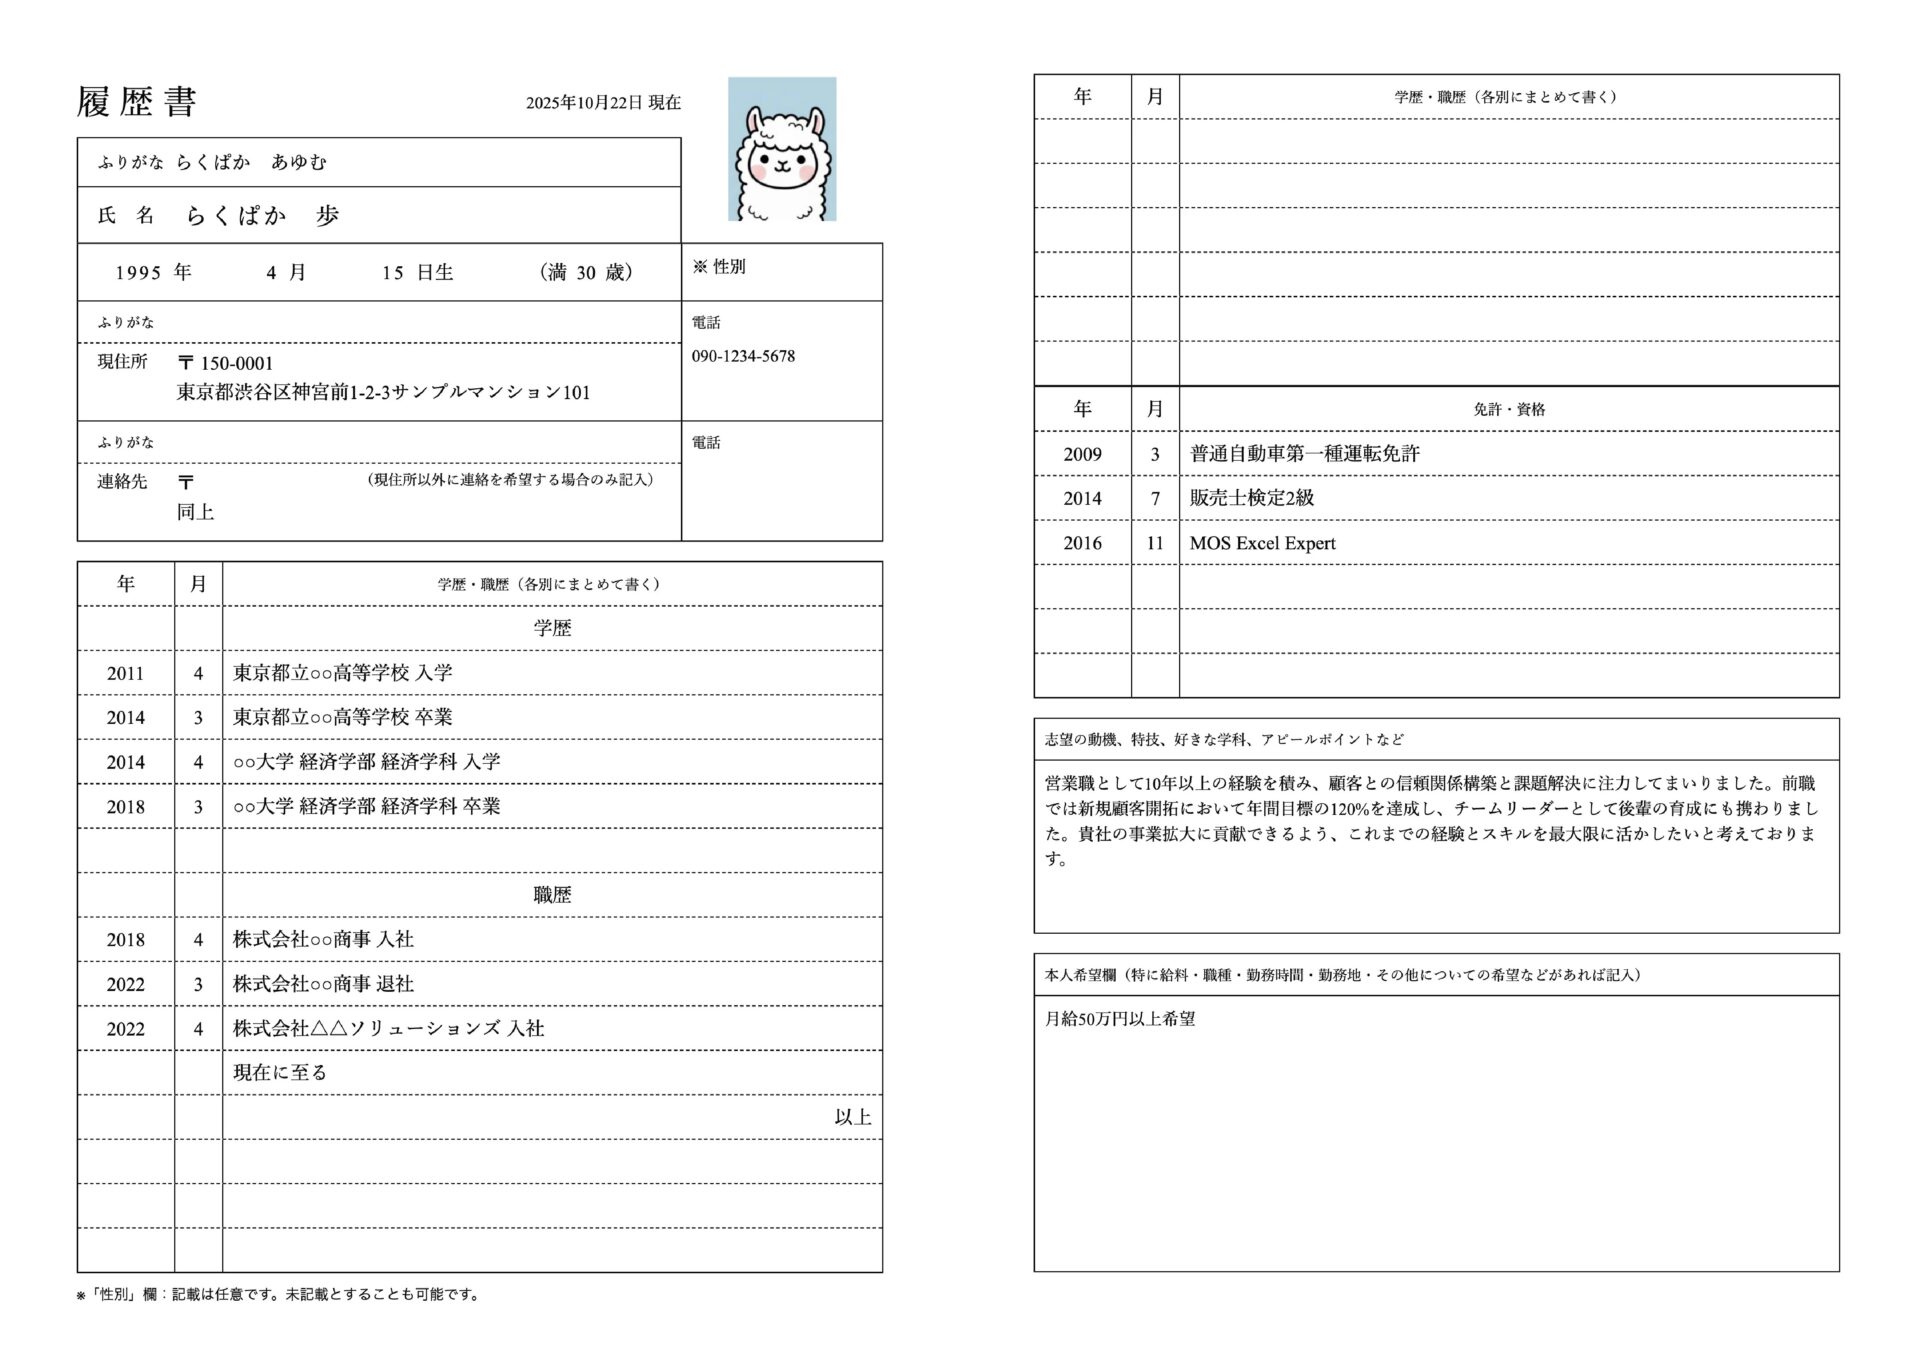 履歴書
2025年10月22日 現在
ふりがな らくぱか　あゆむ
氏　名　らくぱか　歩
1995 年　4 月　15 日生　（満 30 歳）
※ 性別
ふりがな
電話
現住所　〒 150-0001
090-1234-5678
東京都渋谷区神宮前1-2-3サンプルマンション101
ふりがな
電話
連絡先　〒　（現住所以外に連絡を希望する場合のみ記入）
同上
年　月　学歴・職歴（各別にまとめて書く）
学歴
2011　4　東京都立○○高等学校 入学
2014　3　東京都立○○高等学校 卒業
2014　4　○○大学 経済学部 経済学科 入学
2018　3　○○大学 経済学部 経済学科 卒業
職歴
2018　4　株式会社○○商事 入社
2022　3　株式会社○○商事 退社
2022　4　株式会社△△ソリューションズ 入社
現在に至る
以上
※「性別」欄：記載は任意です。未記載とすることも可能です。
年　月　学歴・職歴（各別にまとめて書く）
年　月　免許・資格
2009　3　普通自動車第一種運転免許
2014　7　販売士検定2級
2016　11　MOS Excel Expert
志望の動機、特技、好きな学科、アピールポイントなど
営業職として10年以上の経験を積み、顧客との信頼関係構築と課題解決に注力してまいりました。前職
では新規顧客開拓において年間目標の120%を達成し、チームリーダーとして後輩の育成にも携わりまし
た。貴社の事業拡大に貢献できるよう、これまでの経験とスキルを最大限に活かしたいと考えておりま
す。
本人希望欄（特に給料・職種・勤務時間・勤務地・その他についての希望などがあれば記入）
月給50万円以上希望